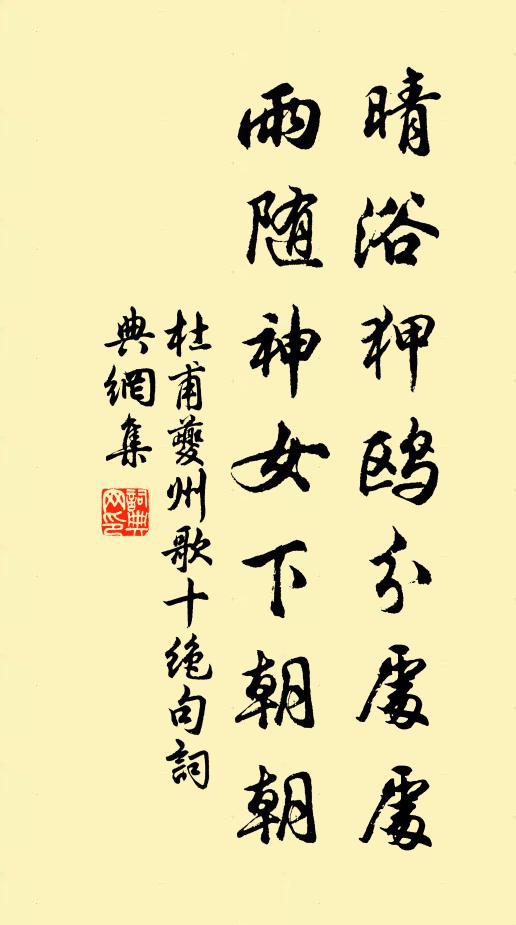 晴浴狎鸥分處處
雨随神女下朝朝
杜甫夔州歌十绝句詞
典網集
詞典網印